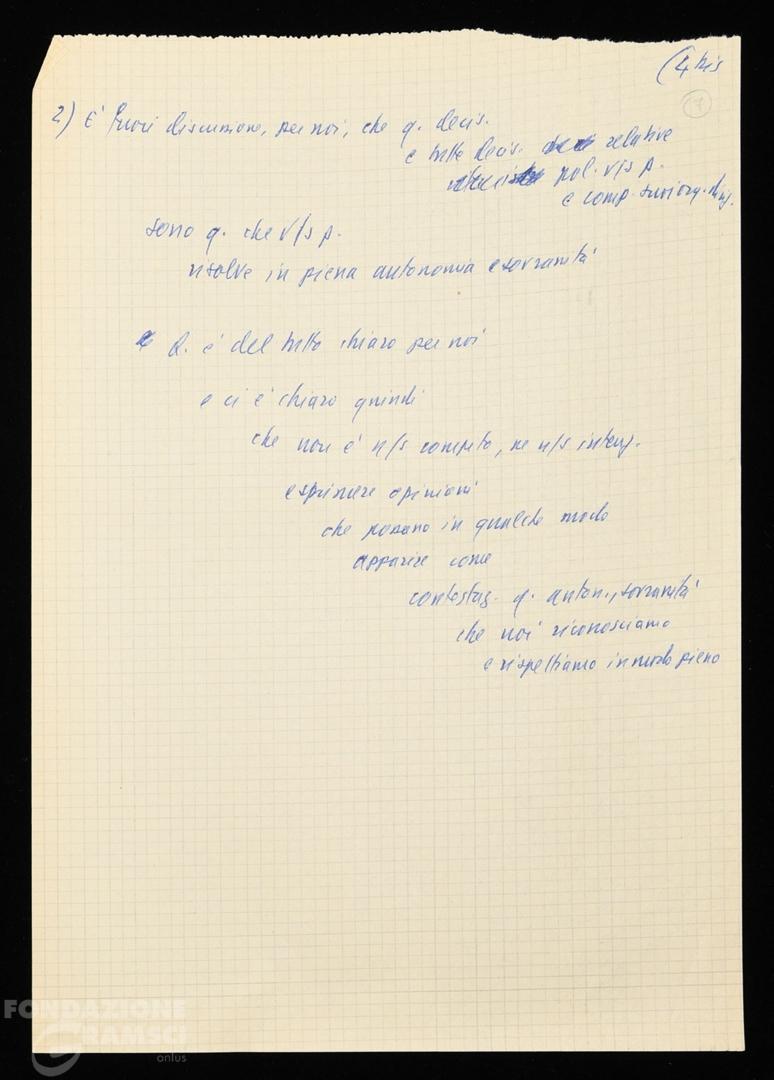 (4 bis
7
2) E' fuori discussione, per noi, che q. decis.
e tutte decis. relative
pol. v/s p.
e comp. suoi org. dirig.
sono q. che v/s p.
risolve in piena autonomia e sovranità
Q. è del tutto chiaro per noi
e ci è chiaro quindi
che non è n/s compito, ne n/s intenz.
esprimere opinioni
che possano in qualche modo
apparire come
contestaz. q. auton., sovranità
che noi riconosciamo
e rispettiamo in modo pieno
FONDAZIONE
GRAMSCI
onlus